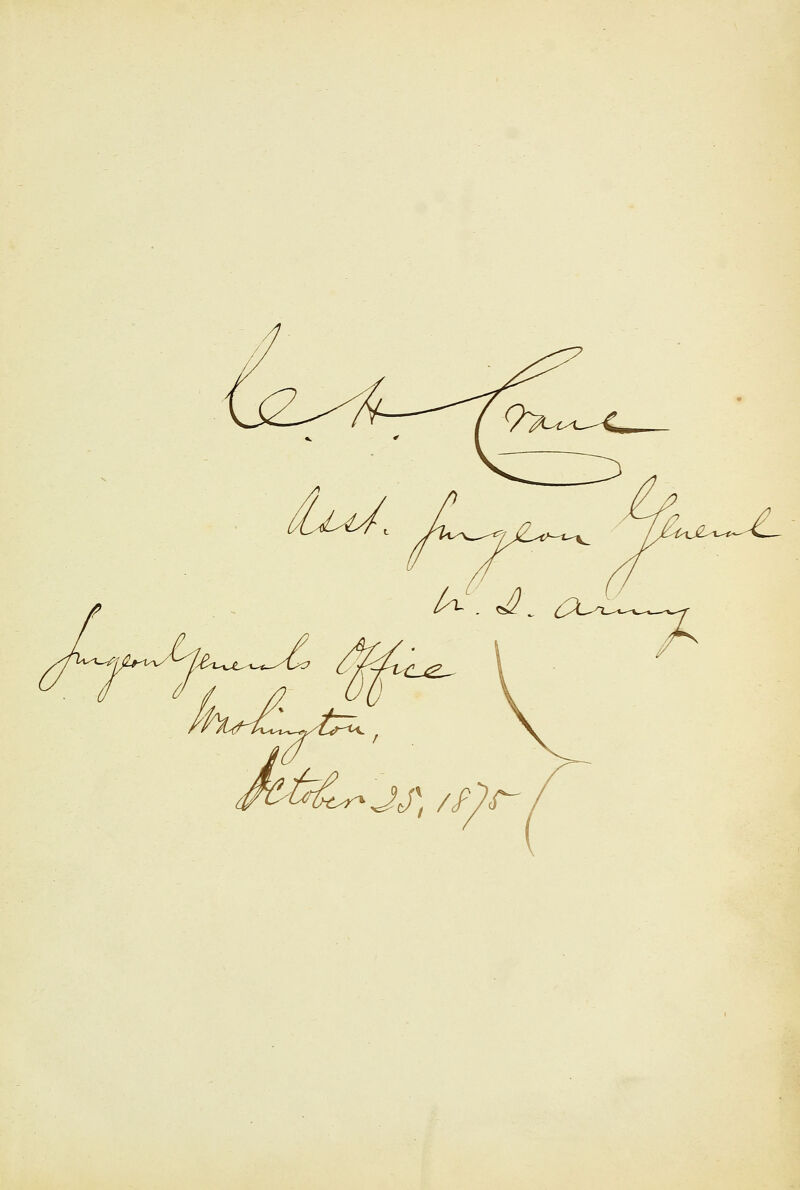 C. H. Crane
Asst. Surgeon General
U. S. Army
Surgeon Generals Office
Washington,
October 25, 1875